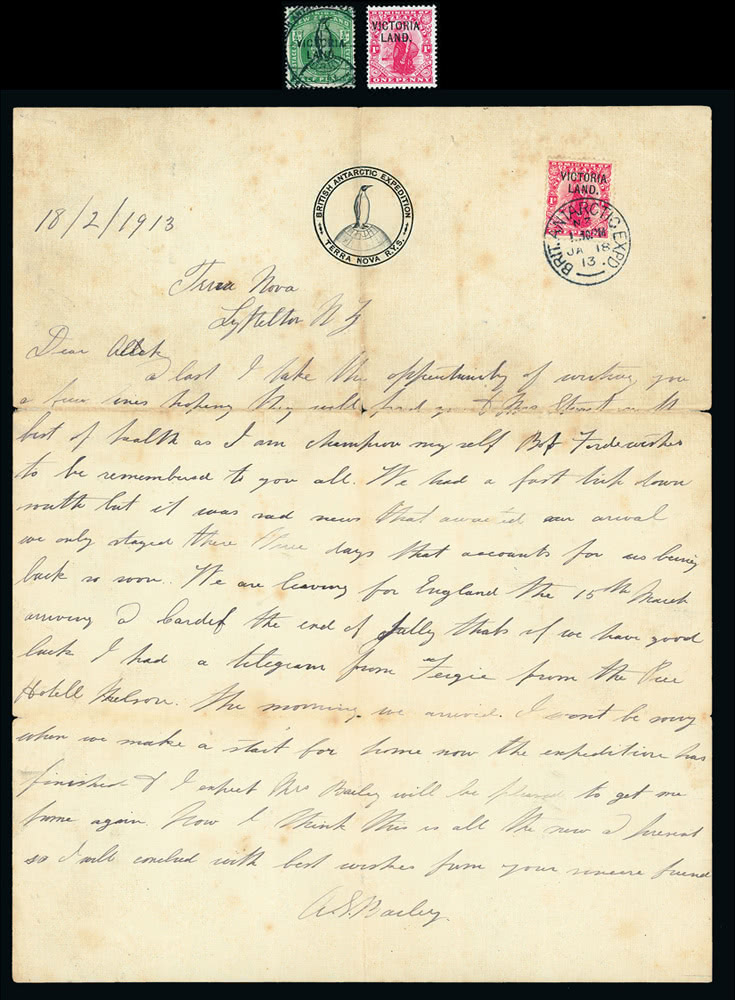 NEW ZEALAND
VICTORIA
LAND.
DOMINION OF
VICTORIA
LAND.
1D 1D
ONE PENNY
BRITISH ANTARCTIC EXPEDITION
TERRA NOVA R.Y.S.
VICTORIA
LAND.
BRIT. ANTARCTIC EXPD
N.Z.
JA 18
13.
18/2/1913
Terra Nova
Lyttelton N Z
Dear Aleck
a last I take the oppertunity of writing you
a few ines hoping they will find you & Mrs Stewart in the
best of health as I am champion my self Bob Forde wishes
to be remembered to you all. We had a fast trip down
south but it was sad news that awaited our arival
we only stayed there three days that accounts for us being
back so soon. We are leaving for England the 15th March
arriving a Cardef the end of Jully thats if we have good
luck I had a telegram from Fergie from the Pier
Hotell Nelson. The morning we arrived. I wont be sorry
when we make a start for home now the expedition has
finished & I expect Mrs Bailey will be pleased to get me
home again. Now I think this is all the new a present
so I will conclud with best wishes from your sincere friend
A S. Bailey